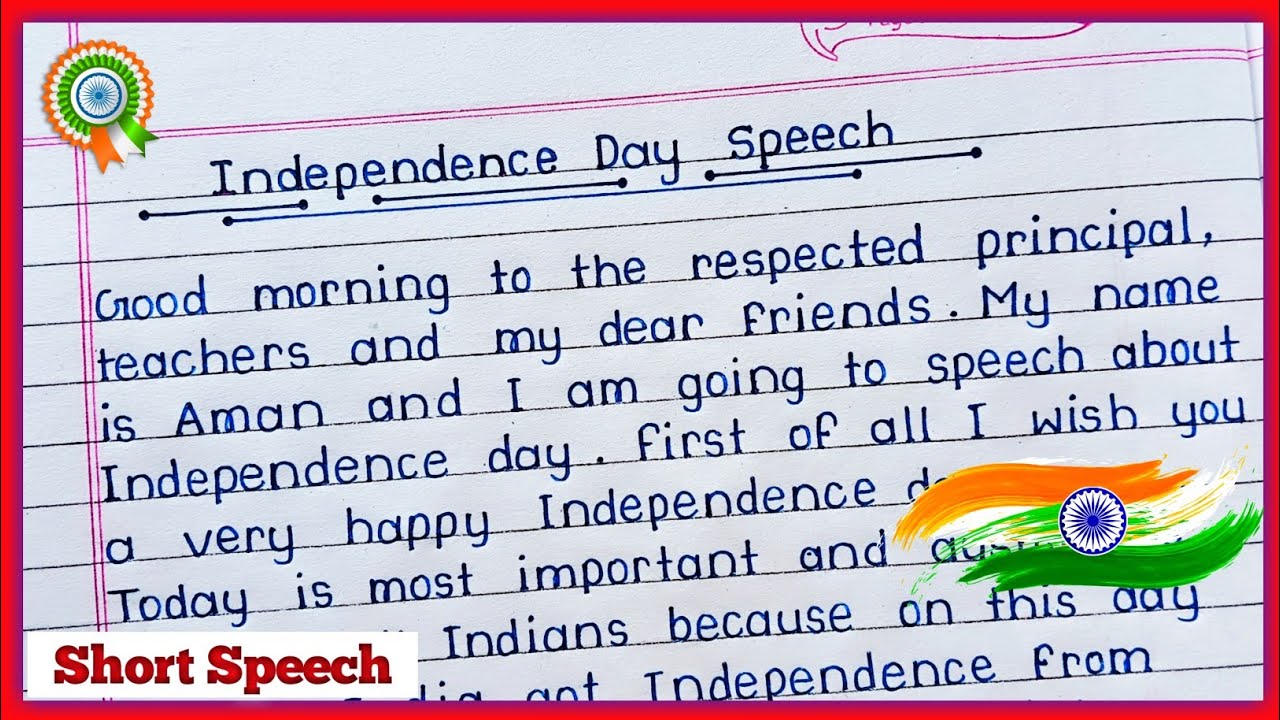 Independence Day Speech
Good morning to the respected principal,
teachers and my dear friends. My name
is Aman and I am going to speech about
Independence day. First of all I wish you
a very happy Independence
Today is most important and
Indians because on this day
got Independence from
Short Speech